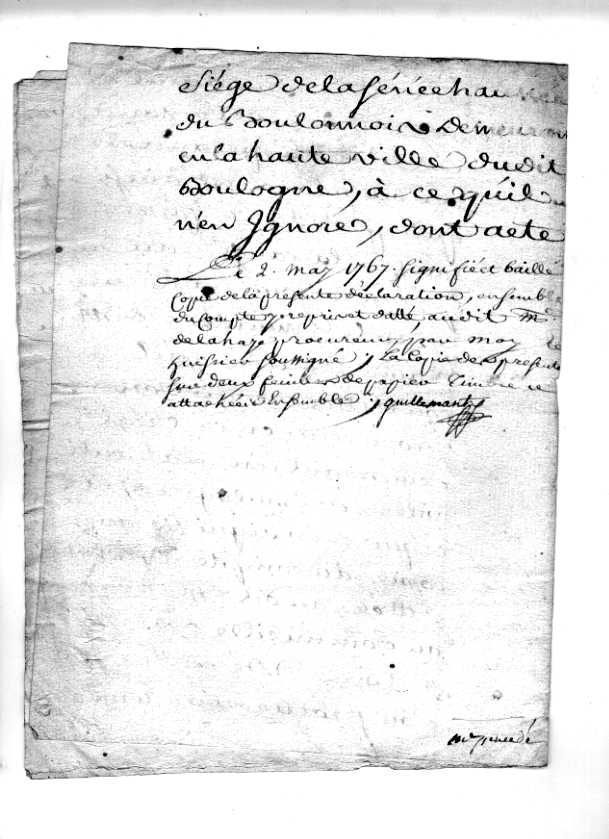 Siége de la sénéchaussée
du Boulonnois Demeurant
en la haute ville dudit
Boulogne, à ce qu'il
n'en Jgnore, dont acte
Le 2. may 1767. signifié et baillé
Copie de la présente déclaration, ensemble
du Compte y repris et datté audit Me.
delahaye procureur, par moy
huissier soussigné, La Copie des présentes
sur deux feuilles de papier Timbré
attachéés Ensemble guillemant